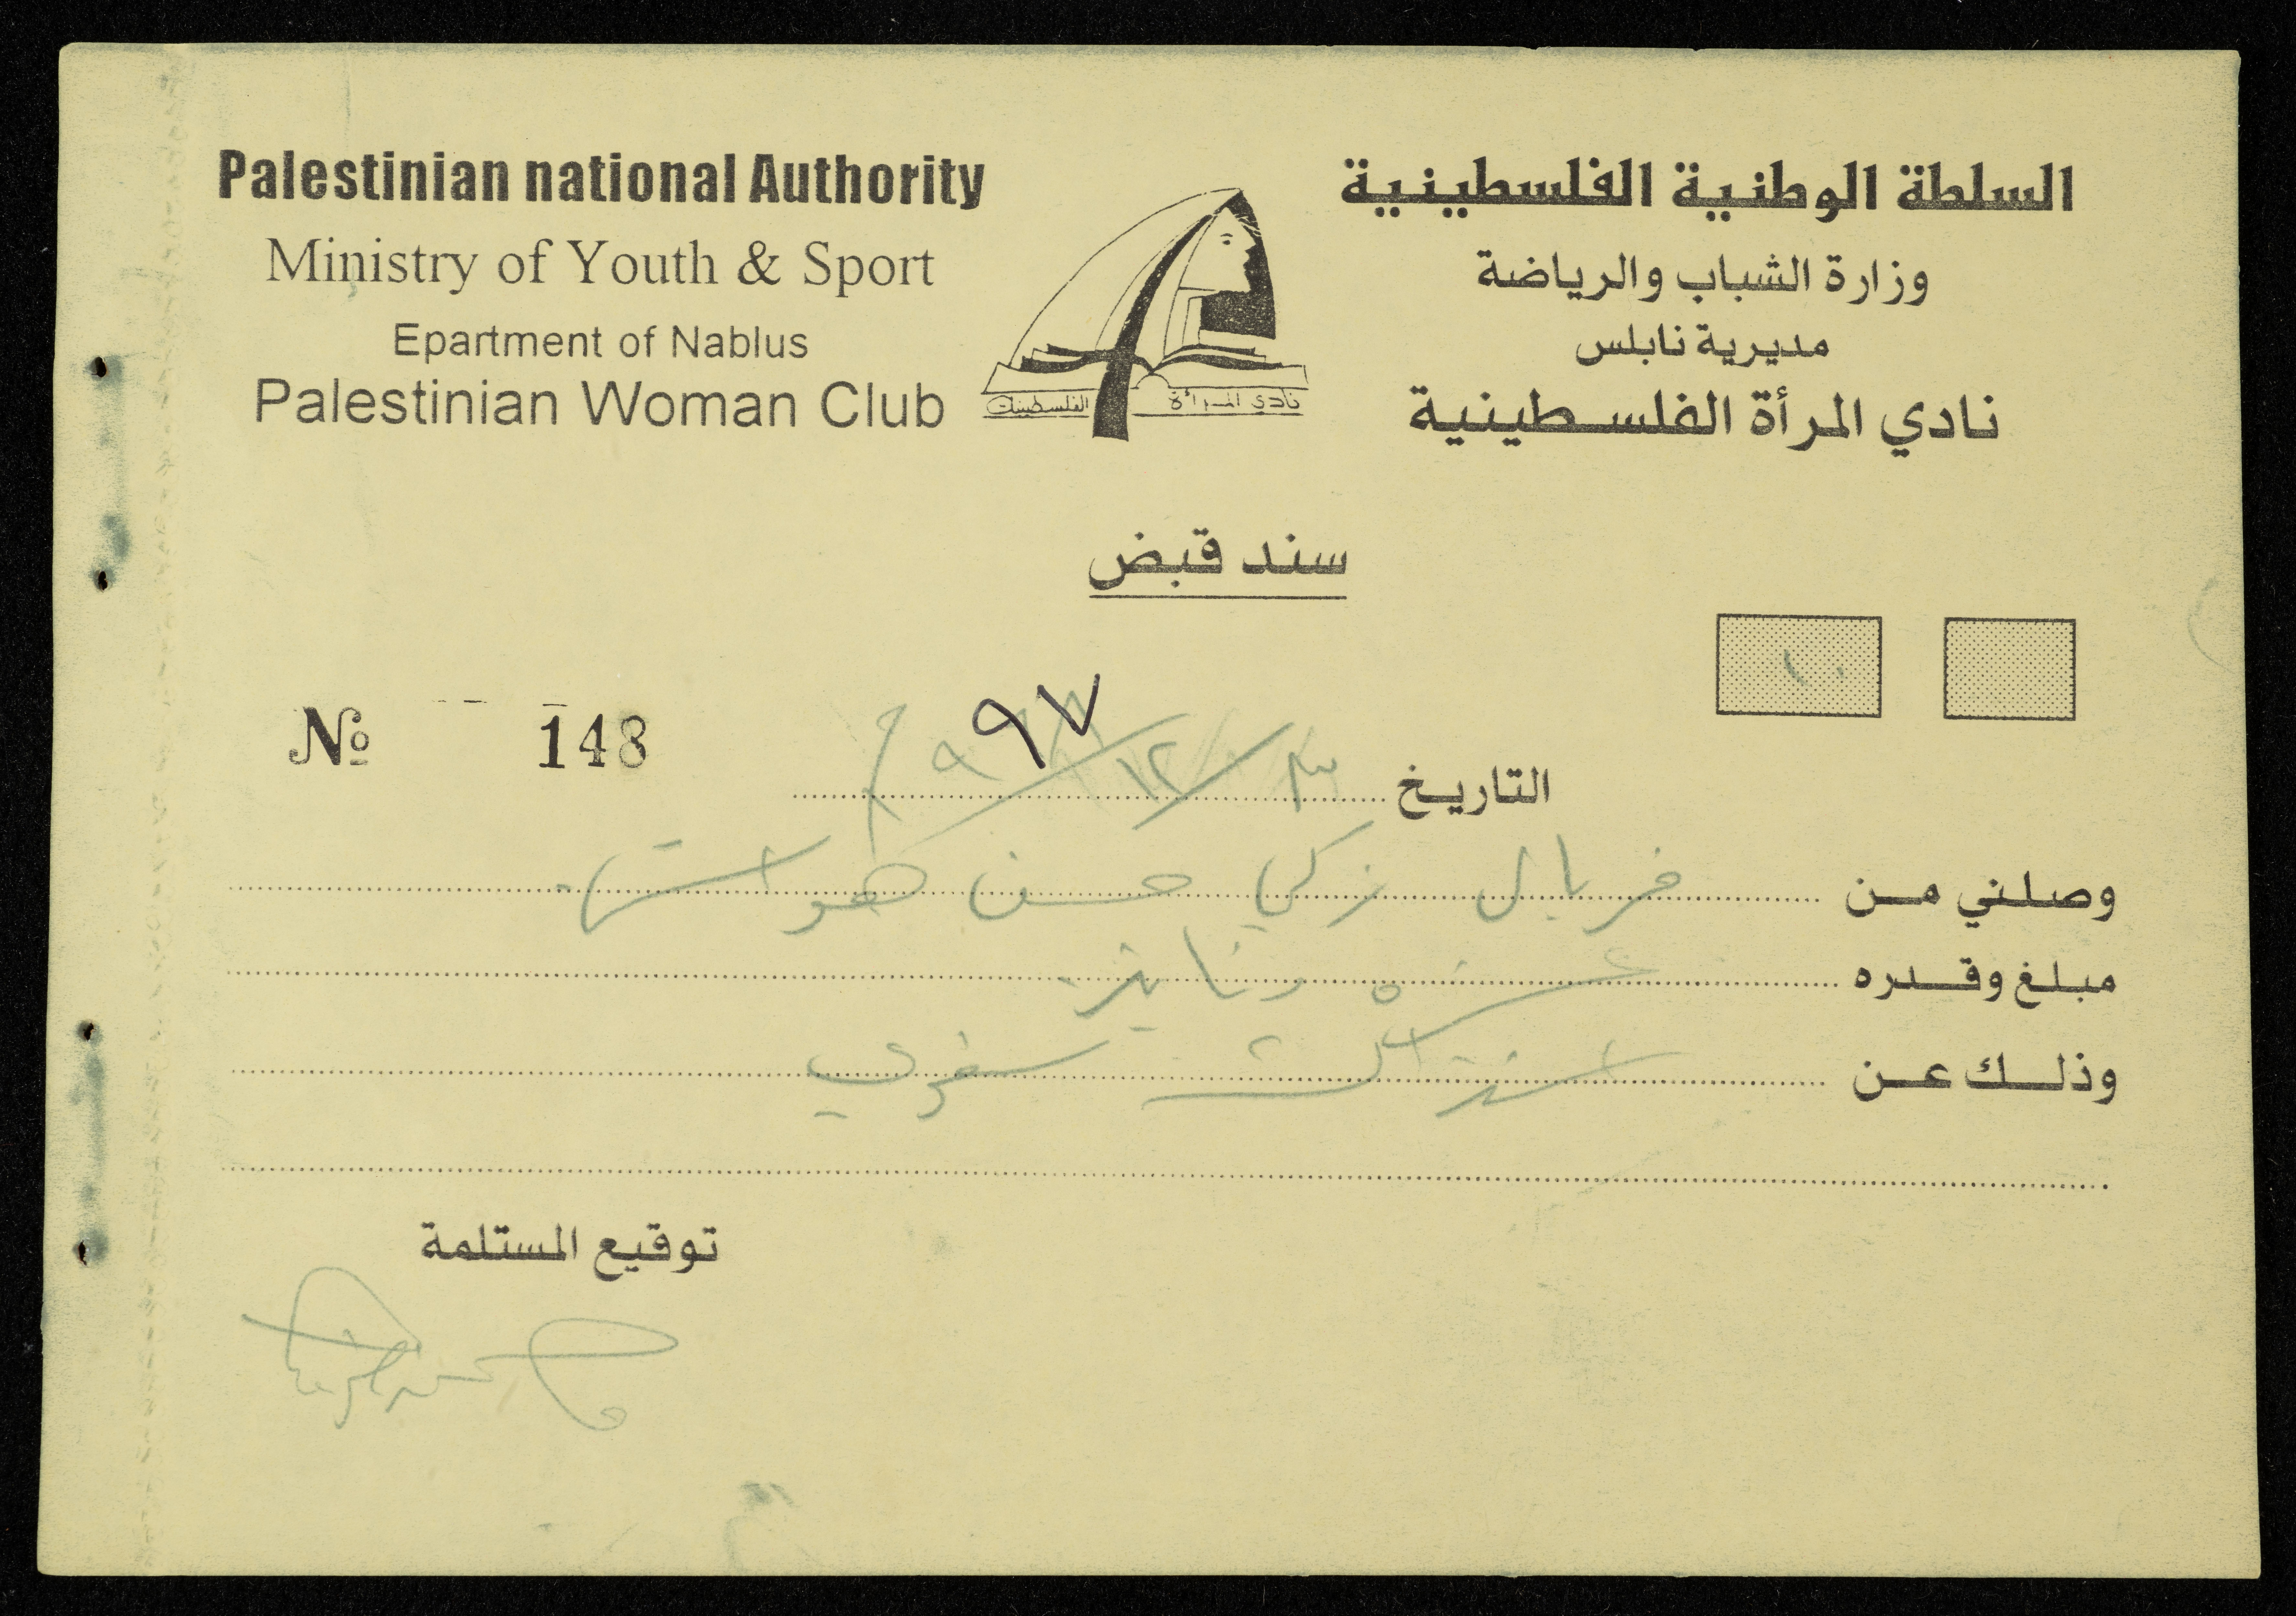 Palestinian national Authority
Ministry of Youth & Sport
Epartment of Nablus
Palestinian Woman Club
السلطة الوطنية الفلسطينية
وزارة الشباب والرياضة
مديرية نابلس
نادي المرأة الفلسطينية
نادي المرأة الفلسطينية
سند قبض
١٠
№ 148
التاريخ ٩٧
وصلني من فريال زكي حسن هواش
مبلغ وقدره عشرة دنانير
وذلك عن اشتراك سنوي
توقيع المستلمة